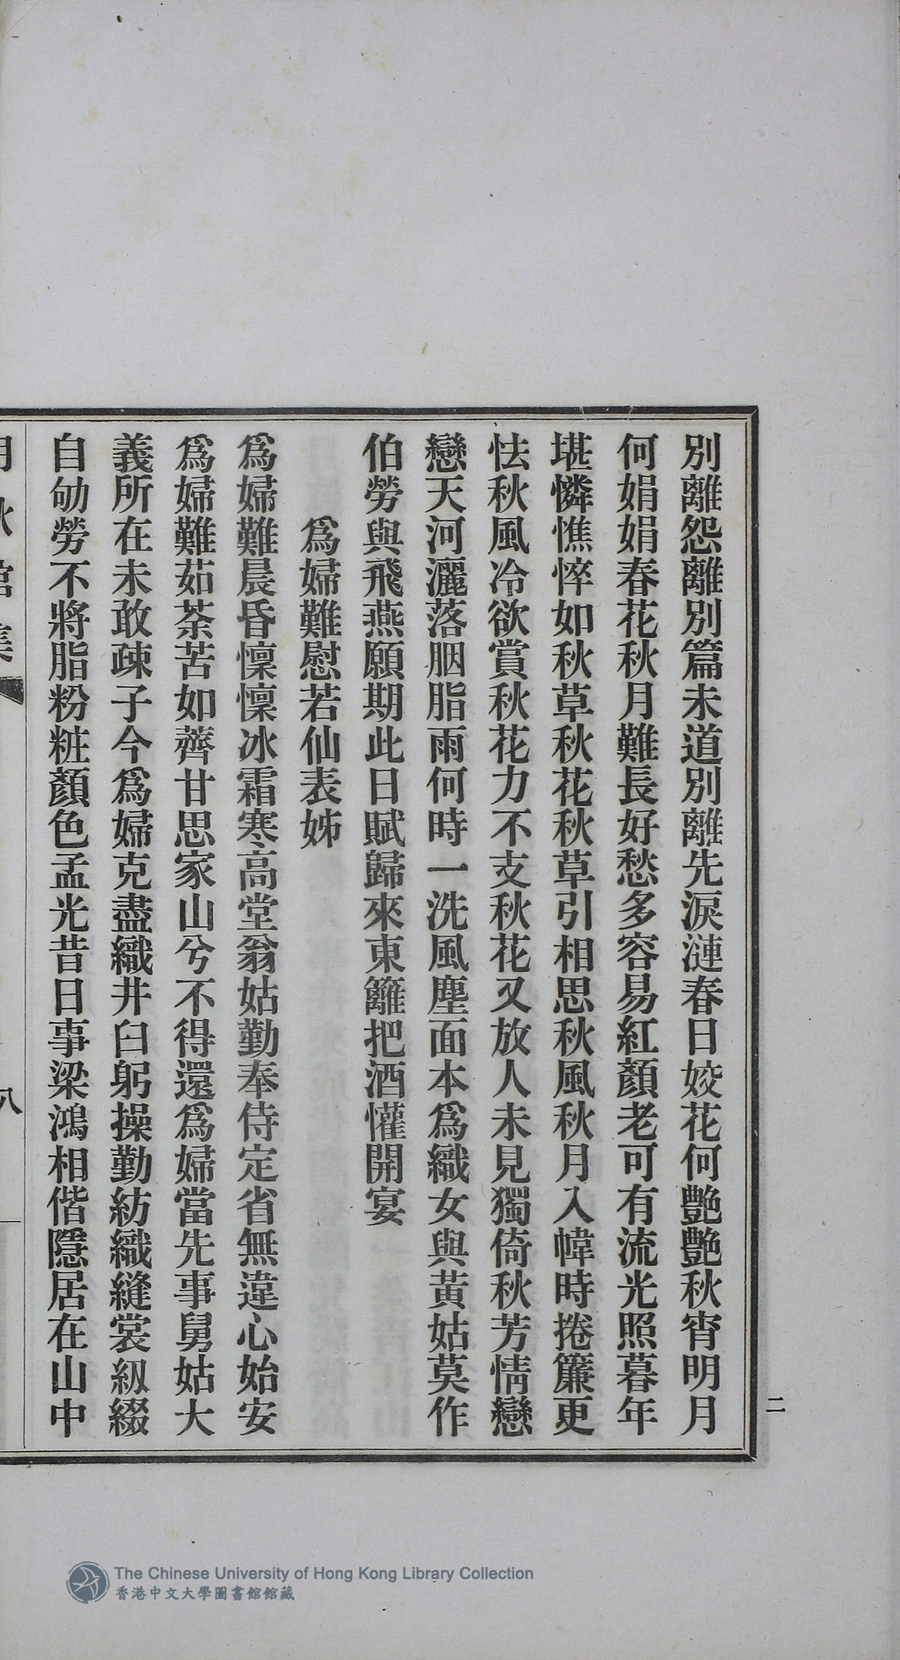 別離怨離別篇未道別離先淚漣春日姣花何艷艷秋宵明月
何娟娟春花秋月難長好愁多容易紅顏老可有流光照暮年
堪憐憔悴如秋草秋花秋草引相思秋風秋月入幃時捲簾更
怯秋風冷欲賞秋花力不支秋花又放人未見獨倚秋芳情戀
戀天河灑落胭脂雨何時一洗風塵面本爲織女與黃姑莫作
伯勞與飛燕願期此日賦歸來東籬把酒懽開宴
爲婦難慰若仙表姊
爲婦難晨昏懍懍冰霜寒高堂翁姑勤奉侍定省無違心始安
爲婦難茹荼苦如薺甘思家山兮不得還爲婦當先事舅姑大
義所在未敢疎子今爲婦克盡織井臼躬操勤紡織縫裳紉綴
自劬勞不將脂粉粧顏色孟光昔日事梁鴻相偕隱居在山中
八
二
The Chinese University of Hong Kong Library Collection
香港中文大學圖書館館藏